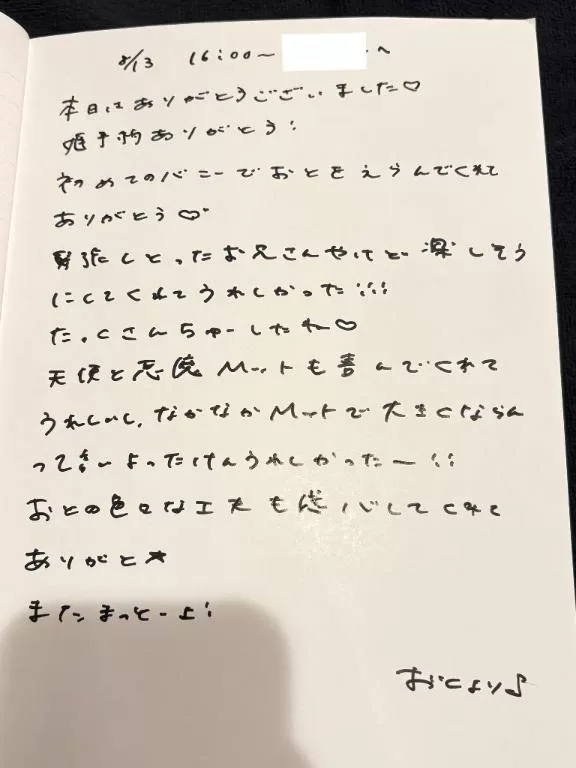 8/13 16:00〜 へ
本日はありがとうございました♡
姫予約ありがとう!
初めてのバニーでおとをえらんでくれて
ありがとう♡
緊張しとったお兄さんやけど楽しそう
にしてくれてうれしかった!!!
たっくさんちゅーしたね♡
天使と悪魔Mットも喜んでくれて
うれしいし、なかなかMットで大きくならん
って言いよったけんうれしかったー!!
おとの色々な工夫も感バしてくれて
ありがと★
またまっとーよ!
おとより♪